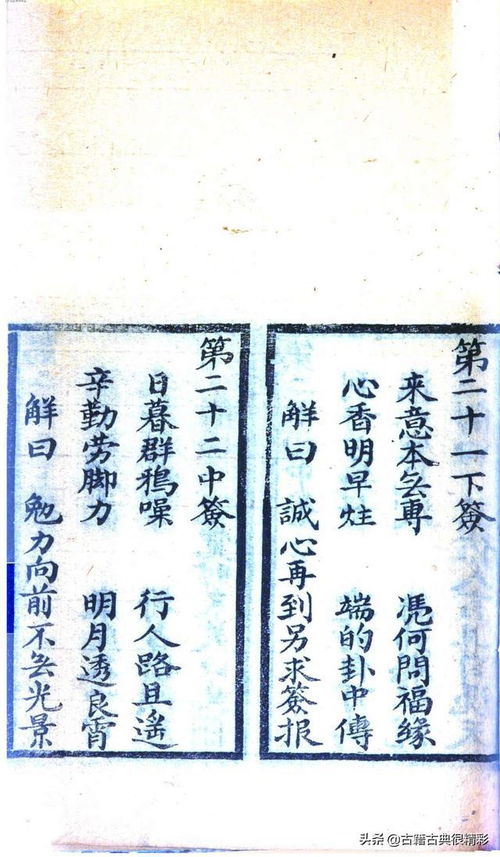 第二十一下簽
来意本無專　憑何問福緣
心香明早炷　端的卦中傳
觧曰　誠心再到另求簽报
第二十二中簽
日暮群鴉噪　行人路且遙
辛勤劳脚力　明月透良宵
觧曰　勉力向前不無光景
头条 @古籍古典很精彩